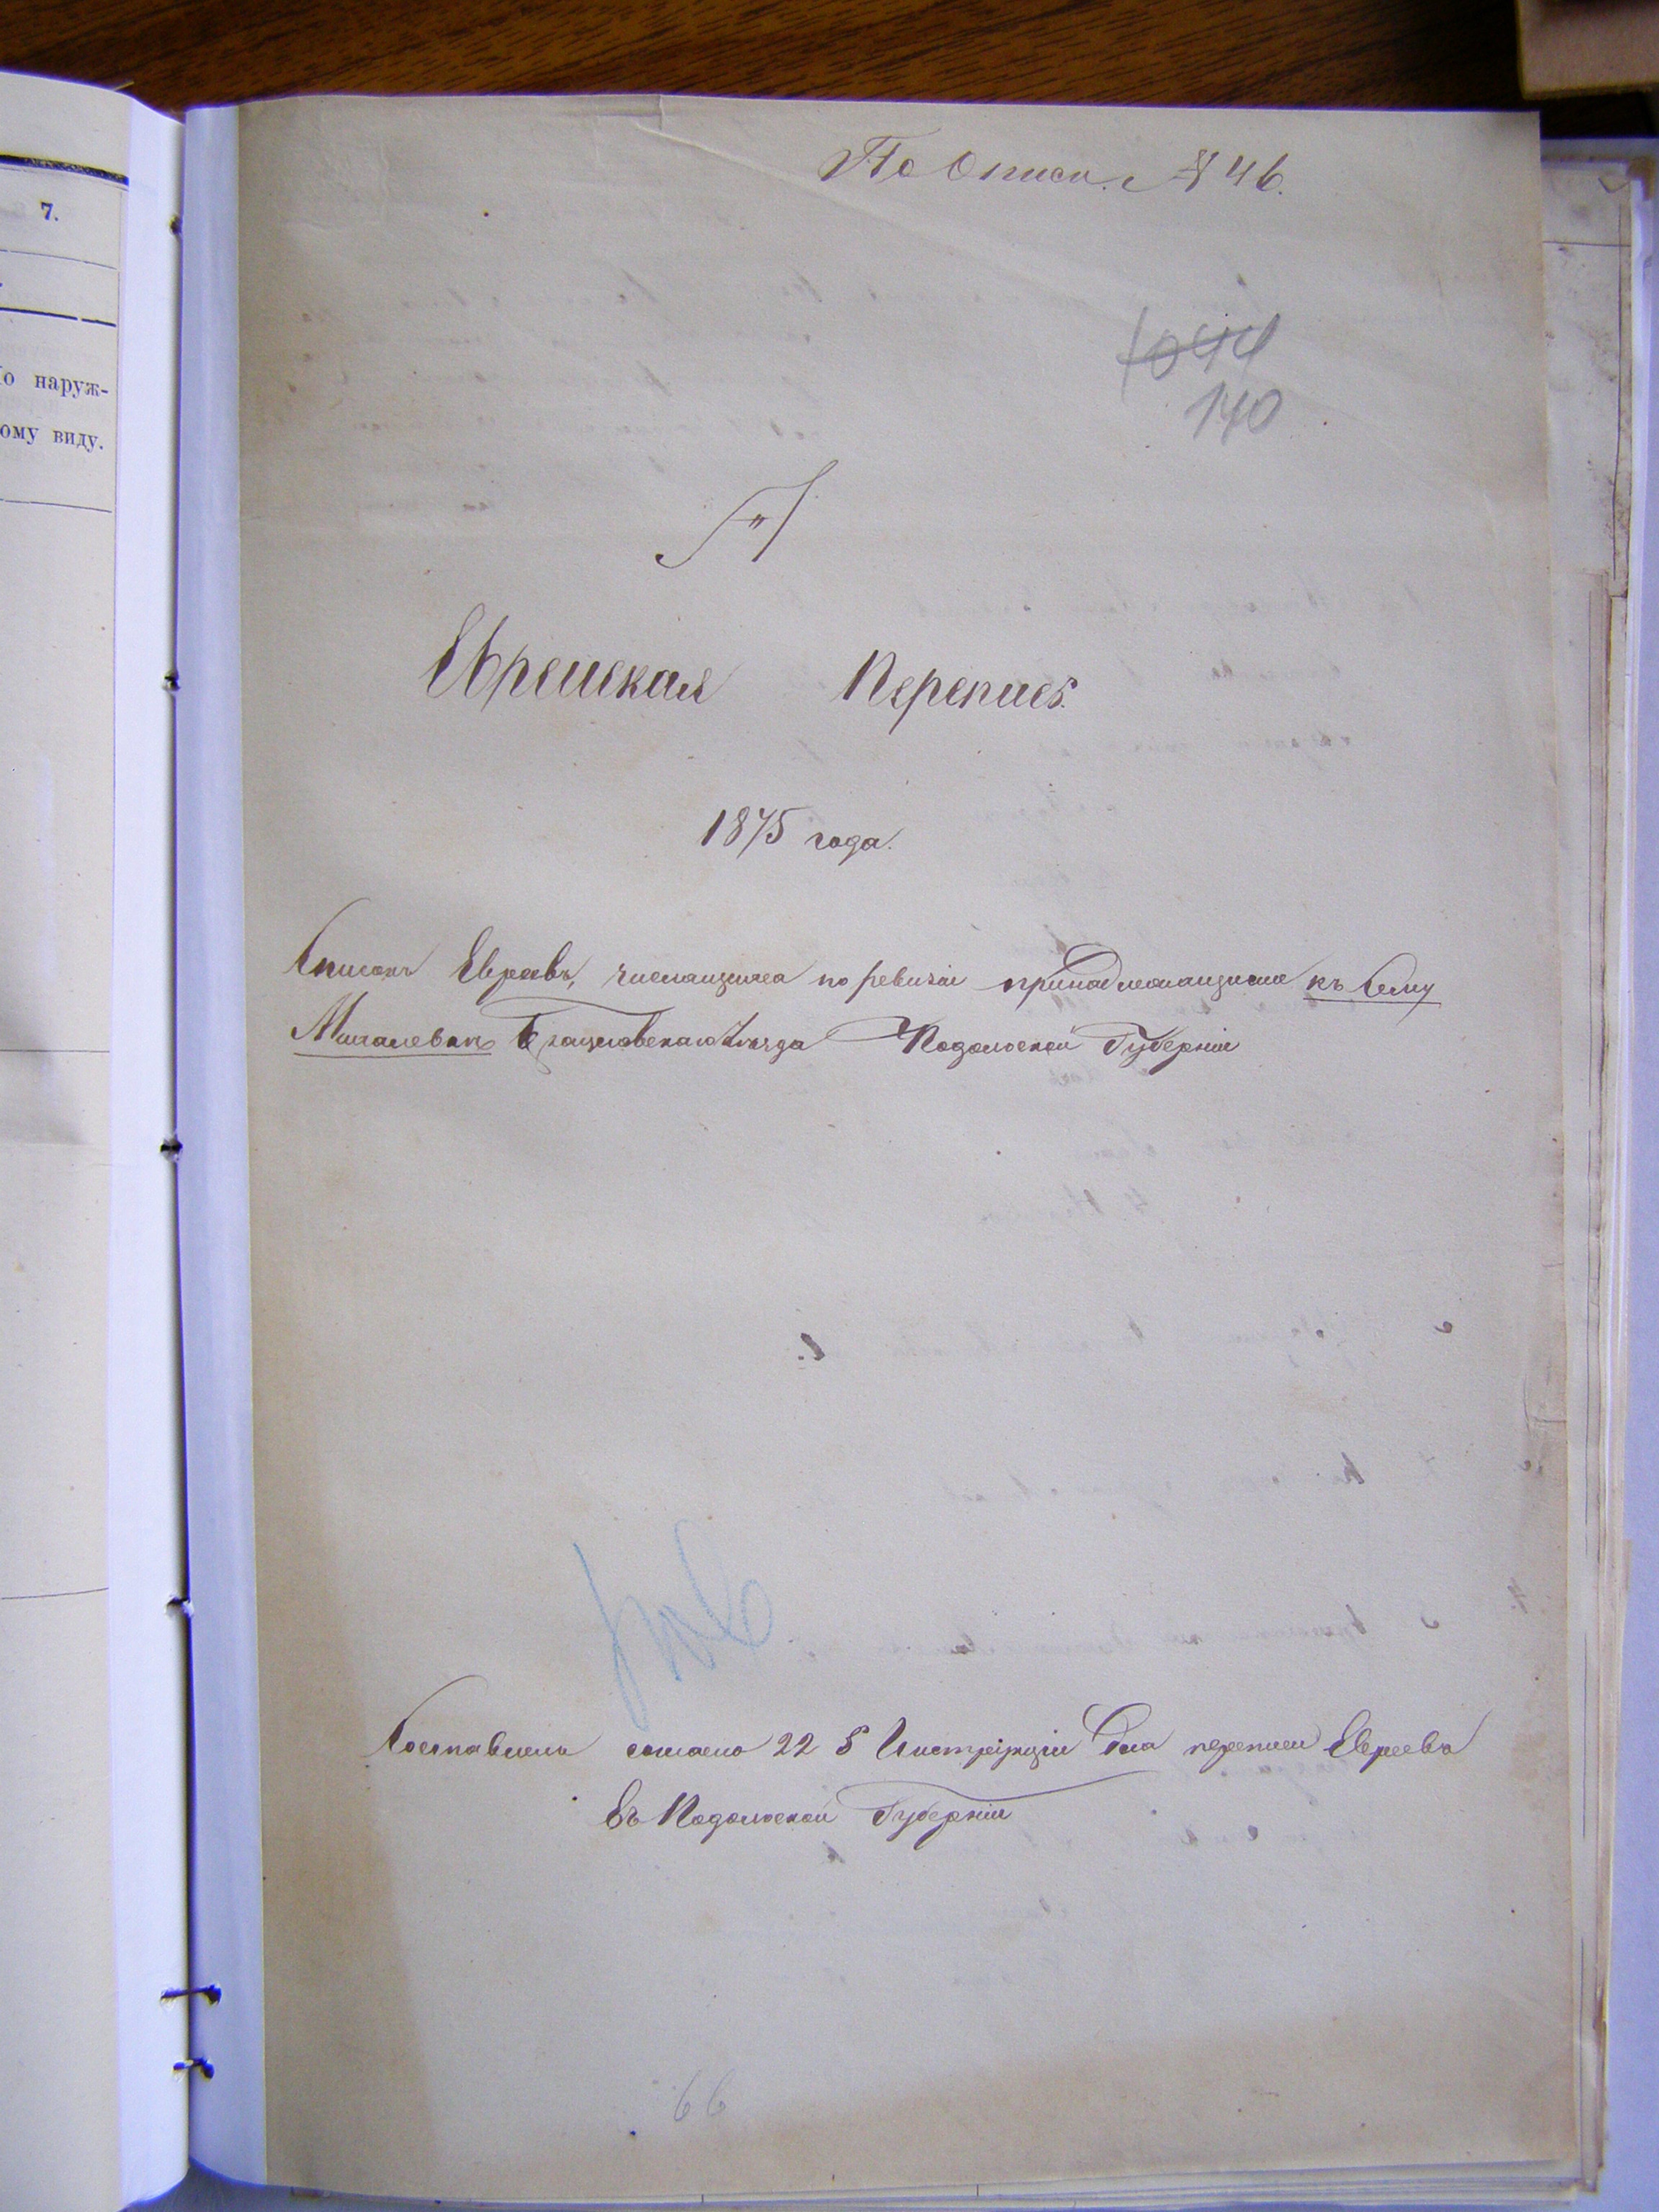 7.
о наруж-
ому виду.
По Описи. № 46.
1044
140
"Г"
Еврейская Перепись.
1875 года.
Списокъ Евреевъ, числящихся по ревизіи принадлежащими къ Селу
Михалевкѣ Брацлавскаго Уѣзда Подольской Губерніи
Составленъ согласно 22 § Инструкціи для переписи Евреевъ
въ Подольской Губерніи
66